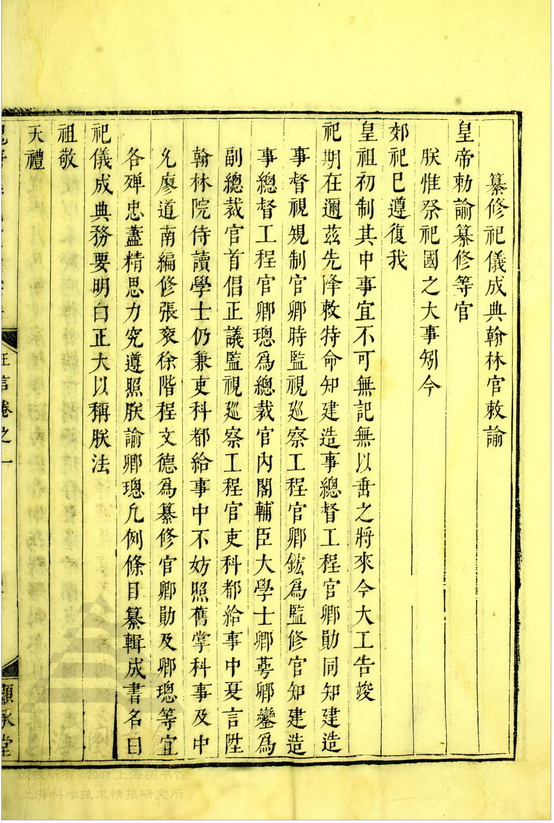 纂修祀儀成典翰林官敕諭
皇帝勅諭纂修等官
朕惟祭祀國之大事矧今
郊祀已遵復我
皇祖初制其中事宜不可無記無以垂之將來今大工告竣
祀期在邇茲先降敕特命知建造事總督工程官卿勛同知建造
事督視規制官卿時監視廵察工程官卿鋐為監修官知建造
事總督工程官卿璁為總裁官內閣輔臣大學士卿蕚卿鑾為
副總裁官首倡正議監視廵察工程官吏科都給事中夏言陞
翰林院侍讀學士仍兼吏科都給事中不妨照舊掌科事及中
允廖道南編修張袞徐階程文德為纂修官卿勛及卿璁等宜
各殫忠盡精思力究遵照朕諭卿璁凡例條目纂輯成書名曰
祀儀成典務要明白正大以稱朕法
祖敬
天禮
卷之一
顯承堂
版权所有 2007 上海图书馆
上海科学技术情报研究所